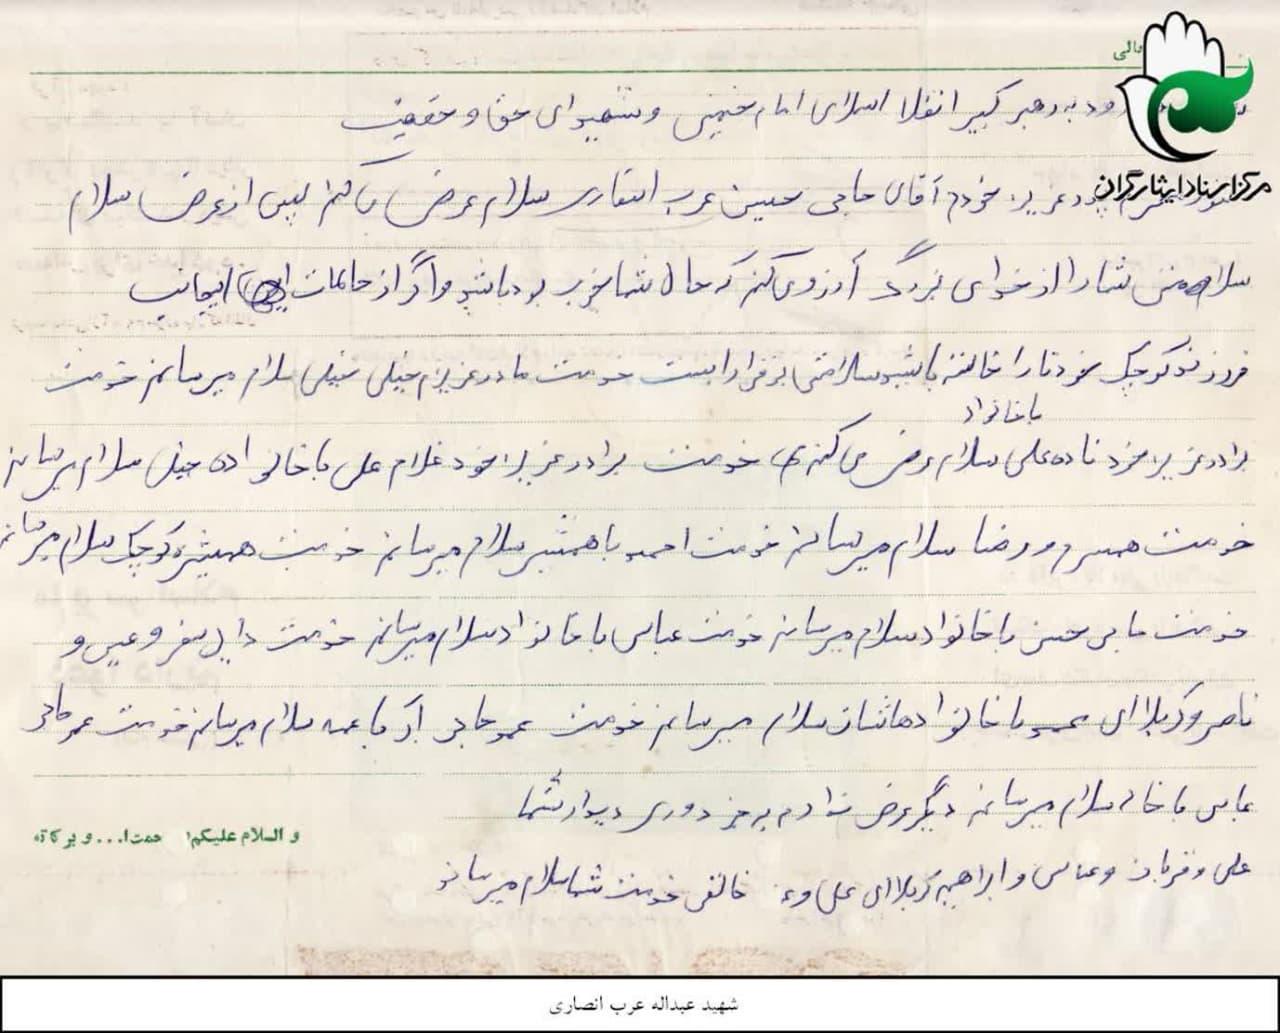 تعالی
درود به رهبر کبیر انقلا اسلامی امام خمینی و شهیدای حق و حقیقت
مرکز اسناد ایثارگران
پدر عزیز خودم آقای حاجی حسین عرب انصاری سلام عرض می‌کنم پس از عرض سلام
سلام من شما را از خدای بزرگ آرزوی کنم که حال شما خوب بوده باشد و اگر از حالمات اینجانب
فرزند کوچک خودتان را خواسته باشید سلامتی برقرار است خدمت مادر عزیزم خیلی خیلی سلام میرسانم خدمت
با خانواد
برادر عزیز خود علی سلام عرض می کنم خدمت برادر عزیز خود غلام علی با خانواده خیلی سلام میرسانم
خدمت همسرم و رضا سلام میرسانم خدمت احمد با همشیر سلام میرسانم خدمت همشیره کوچک سلام میرسانم
خدمت حسن با خانواد سلام میرسانم خدمت عباس با خانواد سلام میرسانم خدمت دایی و
ناصر و کربلاای با خانوادهاشان سلام میرسانم خدمت عمو حاجی با عمه سلام میرسانم خدمت عمو حاجی
عباس با خاله سلام میرسانم دیگر عرض ندارم به جز دوری دیدار شما
و السلام علیکم و رحمت‌ا... و برکاته
علی و قربان و عباس و ابراهیم کربلاای علی و خدمت شما سلام میرساند
شهید عبداله عرب انصاری